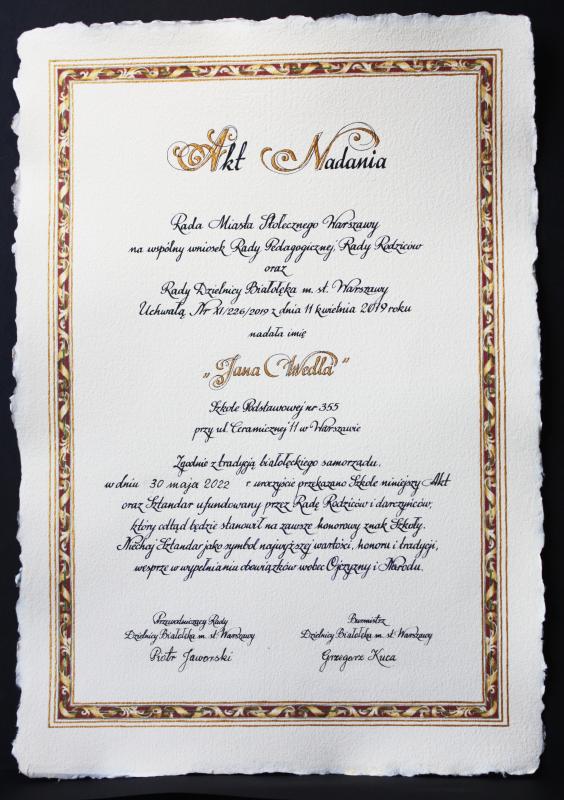 Akt Nadania
Rada Miasta Stołecznego Warszawy
na wspólny wniosek Rady Pedagogicznej, Rady Rodziców
oraz
Rady Dzielnicy Białołęka m. st. Warszawy
Uchwałą Nr XI/226/2019 z dnia 11 kwietnia 2019 roku
nadała imię
„Jana Wedla”
Szkole Podstawowej nr 355
przy ul. Ceramicznej 11 w Warszawie
Zgodnie z tradycją białołęckiego samorządu,
w dniu 30 maja 2022 r uroczyście przekazano Szkole niniejszy Akt
oraz Sztandar ufundowany przez Radę Rodziców i darczyńców,
który odtąd będzie stanowił na zawsze honorowy znak Szkoły.
Niechaj Sztandar jako symbol najwyższej wartości, honoru i tradycji,
wesprze w wypełnianiu obowiązków wobec Ojczyzny i Narodu.
Przewodniczący Rady
Dzielnicy Białołęka m. st. Warszawy
Piotr Jaworski
Burmistrz
Dzielnicy Białołęka m. st. Warszawy
Grzegorz Kuca